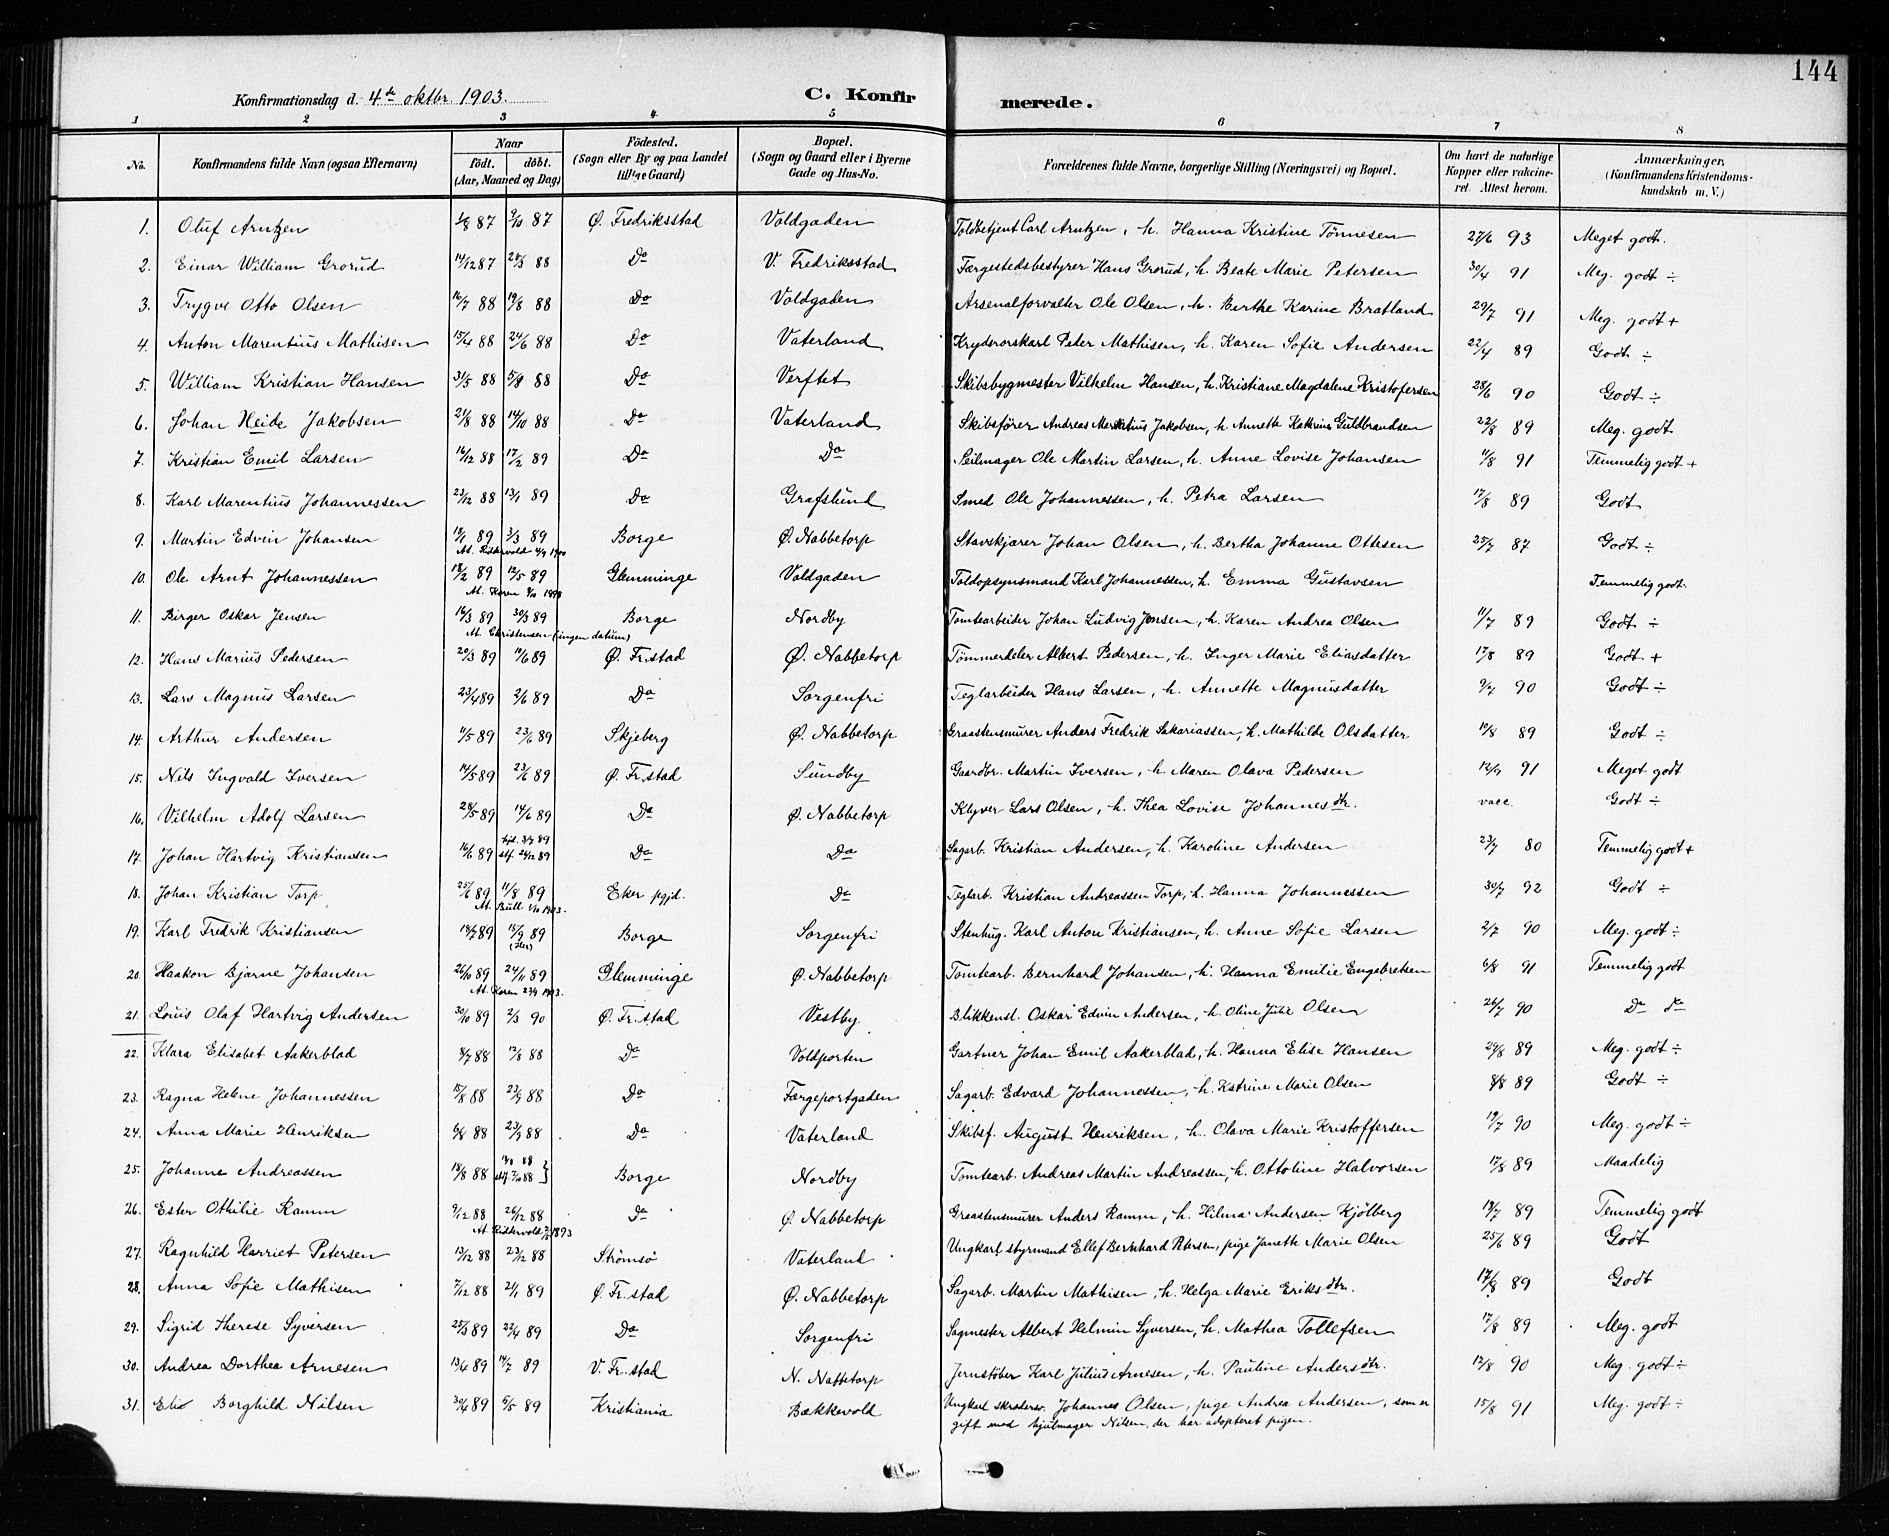 144
Konfirmationsdag d. 4de oktbr. 1903. C. Konfirmerede.
1 2 3 4 5 6 7 8
No. Konfirmandens fulde Navn (ogsaa Efternavn) Naar födt. döbt. (Aar, Maaned og Dag) Födested. (Sogn eller By og paa Landet tillige Gaard) Bopæl. (Sogn og Gaard eller i Byerne Gade og Hus-No. Forældrenes fulde Navne, borgerlige Stilling (Næringsvei) og Bopæl. Om havt de naturlige Kopper eller vakcineret. Attest herom. Anmærkninger, (Konfirmandens Kristendomskundskab m. V.)
1. Oluf Arntzen 87 9/10 87 Ø. Fredriksstad Voldgaden Toldbetjent Carl Arntzen, h. Hanna Kristine Tönnesen 27/6 93 Meget godt.
2. Einar William Grorud 14/12 87 25/3 88 Do V. Fredriksstad Færgestedsbestyrer Hans Grorud, h. Beate Marie Petersen 30/4 91 Meg. godt ÷
3. Trygve Otto Olsen 16/7 88 19/8 88 Do Voldgaden Arsenalforvalter Ole Olsen, h. Berthe Karine Bratland 29/7 91 Meg. godt +
4. Anton Marentius Mathisen 15/4 88 24/6 88 Do Vaterland Krydsorskarl Peter Mathisen, h. Karen Sofie Andersen 22/4 89 Godt ÷
5. William Kristian Hansen 31/5 88 5/8 88 Do Verftet Skibsbygmester Vilhelm Hansen, h. Kristiane Magdalene Kristofersen 28/6 90 Godt ÷
6. Johan Heide Jakobsen 21/8 88 14/10 88 Do Vaterland Skibsfører Andreas Jakobsen, h. Annette Kathrine Guldbrandsen 22/8 89 Meg. godt
7. Kristian Emil Larsen 16/12 88 17/2 89 Do Do Seilmager Ole Martin Larsen, h. Anne Lovise Johansen 11/8 91 Temmelig godt +
8. Karl Marentius Johannessen 23/12 88 13/1 89 Do Grafslund Smed Ole Johannessen, h. Petra Larsen 17/8 89 Godt
9. Martin Edvin Johansen 18/1 89 3/3 89 Borge Ø. Nabbetorp Stavskjærer Johan Olsen, h. Bertha Johanne Ottesen 25/7 87 Godt ÷
At. 1900
10. Ole Arnt Johannessen 18/2 89 12/5 89 Glemminge Voldgaden Toldopsynsmand Karl Johannessen, h. Emma Gustavsen Temmelig godt.
At. Koren 1898
11. Birger Oskar Jensen 16/3 89 30/3 89 Borge Nordby Tomtearbeider Johan Ludvig Jensen, h. Karen Andrea Olsen 11/7 89 Godt ÷
At. Christensen (ingen datum)
12. Hans Marius Pedersen 20/3 89 10/6 89 Ø. Fr.stad Ø. Nabbetorp Tömmerdeler Albert Pedersen, h. Inger Marie Eliasdatter 17/8 89 Godt +
13. Lars Magnus Larsen 23/4 89 2/6 89 Do Sorgenfri Teglarbeider Hans Larsen, h. Annette Magnusdatter 9/7 90 Godt ÷
14. Arthur Andersen 11/5 89 23/6 89 Skjeberg Ø. Nabbetorp Graastensmurer Anders Fredrik Sakariassen, h. Mathilde Olsdatter 10/8 89 Godt ÷
15. Nils Ingvald Iversen 14/5 89 23/6 89 Ø. Fr.stad Sundby Gaardbr. Martin Iversen, h. Maren Olava Pedersen 12/9 91 Meget godt
16. Vilhelm Adolf Larsen 28/5 89 14/6 89 Do Ø. Nabbetorp Klyver Lars Olsen, h. Thea Lovise Johannesdtr. vacc. Godt ÷
17. Johan Hartvig Kristiansen 16/6 89 hjd. 3/7 89 stf. 26/12 89 Do Do Sagarb. Kristian Andersen, h. Karoline Andersen 23/7 80 Temmelig godt +
18. Johan Kristian Torp 25/6 89 11/8 89 Eker pgjd. Do Teglarb. Kristian Andreassen Torp, h. Hanna Johannessen 30/7 92 Godt ÷
At. Bull 1/10 1903.
19. Karl Fredrik Kristiansen 18/7 89 15/9 89 Borge Sorgenfri Stenhug. Karl Anton Kristiansen, h. Anne Sofie Larsen 2/7 90 Meg. godt ÷
20. Haakon Bjarne Johansen 26/10 89 24/11 89 Glemminge Ø. Nabbetorp Tomtearb. Bernhard Johansen, h. Hanna Emilie Engebretsen 6/8 91 Temmelig godt
At. Koren 23/9 1903.
21. Louis Olaf Hartvig Andersen 30/10 89 2/3 90 Ø. Fr.stad Vestby Blikkensl. Oskar Edvin Andersen, h. Oline Julie Olsen 26/7 90 Do do
22. Klara Elisabet Aakerblad 8/7 88 12/8 88 Do Voldporten Gartner Johan Emil Aakerblad, h. Hanna Elise Hansen 29/8 89 Meg. godt ÷
23. Ragna Helene Johannessen 15/8 88 23/9 88 Do Færgeportgaden Sagarb. Edvard Johannessen, h. Katrine Marie Olsen 8/8 89 Godt ÷
24. Anna Marie Henriksen 6/8 88 23/9 88 Do Vaterland Skibsf. August Henriksen, h. Olava Marie Kristoffersen 19/7 90 Meg. godt ÷
25. Johanne Andreassen 18/8 88 88 stf. 7/10 88 Borge Nordby Tomtearb. Andreas Martin Andreassen, h. Ottoline Halvorsen 17/8 89 Maadelig
26. Ester Othilie Ramm 9/12 88 26/12 88 Do Ø. Nabbetorp Graastensmurer Anders Ramm, h. Hilma Andersen Kjölberg 19/7 89 Temmelig godt
At. 1893
27. Ragnhild Harriet Petersen 13/12 88 23/12 88 Strömsö Vaterland Ungkarl styrmand Ellef Bernhard Petersen, pige Janette Marie Olsen 25/6 89 Godt
28. Anna Sofie Mathisen 7/12 88 2/1 89 Ø. Fr.stad Ø. Nabbetorp Sagarb. Martin Mathisen, h. Helga Marie Eriksdtr. 17/8 89 Godt
29. Sigrid Therese Syversen 25/3 89 22/4 89 Do Sorgenfri Sagmester Albert Helmin Syversen, h. Mathea Tollefsen 17/8 89 Meg. godt
30. Andrea Dorthea Arnesen 13/4 89 14/7 89 V. Fr.stad N. Nabbetorp Jernstöber Karl Julius Arnesen, h. Pauline Andersdtr. 12/8 90 Meg. godt ÷
31. Elise Borghild Nilsen 30/4 89 5/5 89 Kristiania Bækkevold Ungkarl skræddersv. Johannes Olsen, pige Andrea Andersen, som er 15/8 91 Meg. godt ÷
gift med hjulmager Nilsen, der har adopteret pigen.